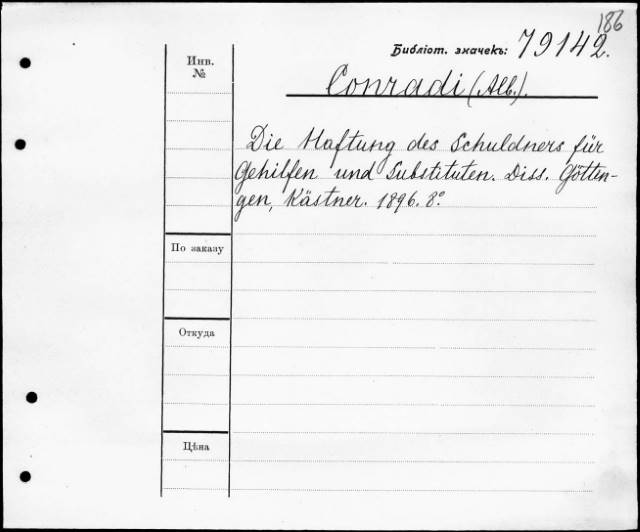 186
Библіот. значекъ: 79142.
Инв.
№
Conradi (Alb.).
Die Haftung des Schuldners für
Gehilfen und Substituten. Diss. Göttin-
gen, Kästner. 1896. 8°.
По заказу
Откуда
Цѣна